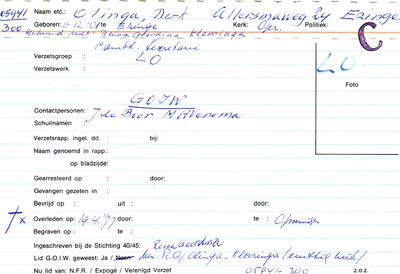 05941 Naam etc.: Olinga, Derk Allersmaweg 24 Ezinge
300 Geboren: te Ezinge Kerk: Politiek: C
gehuwd met Reina Geordina Kleeringa
Verzetsgroep LO LO
Verzetswerk :
Foto
G.O.I.W.
Contactpersonen: J de Boer M Havenema
Schuilnaam :
Verzetsrapp. ingel. dd. : bij:
Naam genoemd in rapp.:
op bladzijde:
Gearresteerd op : door:
Gevangen gezeten in :
Bevrijd op : uit : door:
†x Overleden op : 19.4.'77 door: te :
Begraven op : te :
Ingeschreven bij de Stichting 40/45: Reina Geordina
Lid G.O.I.W. geweest: Ja / Neen Mw. R.G. Olinga-Kleeringa
Nu lid van: N.F.R. / Expogé / Verenigd Verzet 05941-300 z.o.z.